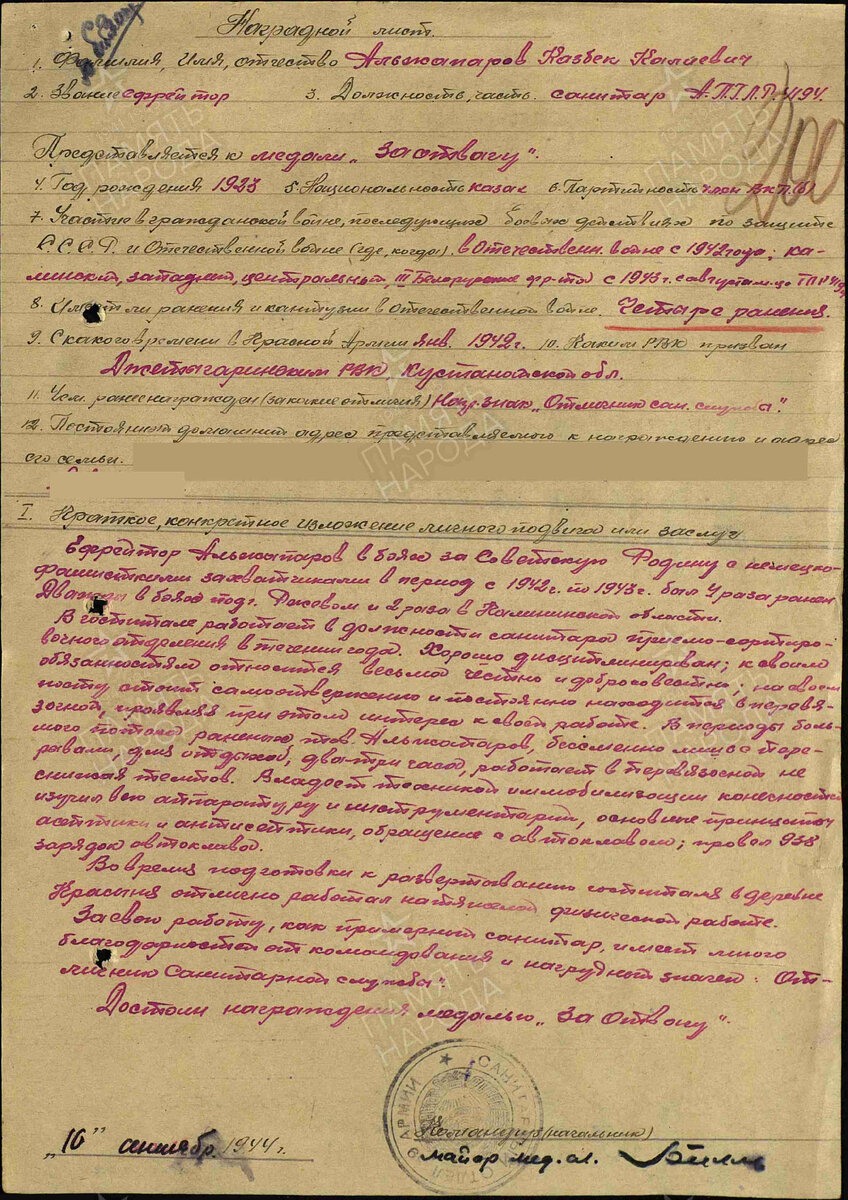 Наградной лист.
1. Фамилия, Имя, отчество Альжапаров Казбек Калиевич
2. Звание ефрейтор 3. Должность, часть. санитар А.П.Г.Л.Р. 4194.
Представляется к медали „За отвагу".
4. Год рождения 1923 5. Национальность казах 6. Партийность член ВКП(б)
7. Участие в гражданской войне, последующих боевых действиях по защите
С.С.С.Р. и Отечественной войне (где, когда). в Отечественн. войне с 1942 года; ка-
лининский, западный, центральный, III Белорусские фр-ты с 1943 г. с августа м-ца
8. Имеет ли ранения и контузии в отечественной войне. Четыре ранения.
9. С какого времени в Красной Армии янв. 1942 г. 10. Каким РВК призван
Джетыгаринским РВК Кустанайской обл.
11. Чем ранее награжден (за какие отличия) Нагр. знак „Отличник сан. службы".
12. Постоянный домашний адрес представляемого к награждению и адрес
его семьи.
I. Краткое, конкретное изложение личного подвига или заслуг
Ефрейтор Альжапаров в боях за Советскую Родину с немецко-
фашисткими захватчиками в период с 1942 г. по 1943 г. был 4 раза ранен
Дважды в боях под г. Ржевом и 2 раза в Калининской области.
В госпитале работает в должности санитара приемо-сортиро-
вочного отделения в течении года. Хорошо дисциплинирован; к своим
обязанностям относится весьма честно и добросовестно; на своем
посту стоит самоотверженно и постоянно находится в перевя-
зочной, проявляя при этом интерес к своей работе. В периоды боль-
шого потока раненых тов. Альжапаров, бессменно лишь с пере-
рывами, для отдыха, два-три часа, работает в перевязочной не
снижая темпов. Владеет техникой иммобилизации конечностей
изучил всю аппаратуру и инструментарий, основные принципы
асептики и антисептики, обращение с автоклавом; провел 938
зарядок автоклава.
Во время подготовки к развертыванию госпиталя в деревне
Красыня отлично работал на тяжелой физической работе.
За свою работу, как примерный санитар, имеет много
благодарностей от командования и нагрудный значек: От-
личник Санитарной службы".
Достоин награждения медалью „За Отвагу".
Командир (начальник)
„10" 1944 г. майор мед. сл.
САНИТ АРМИИ ОТДЕЛ
ПАМЯТЬ НАРОДА